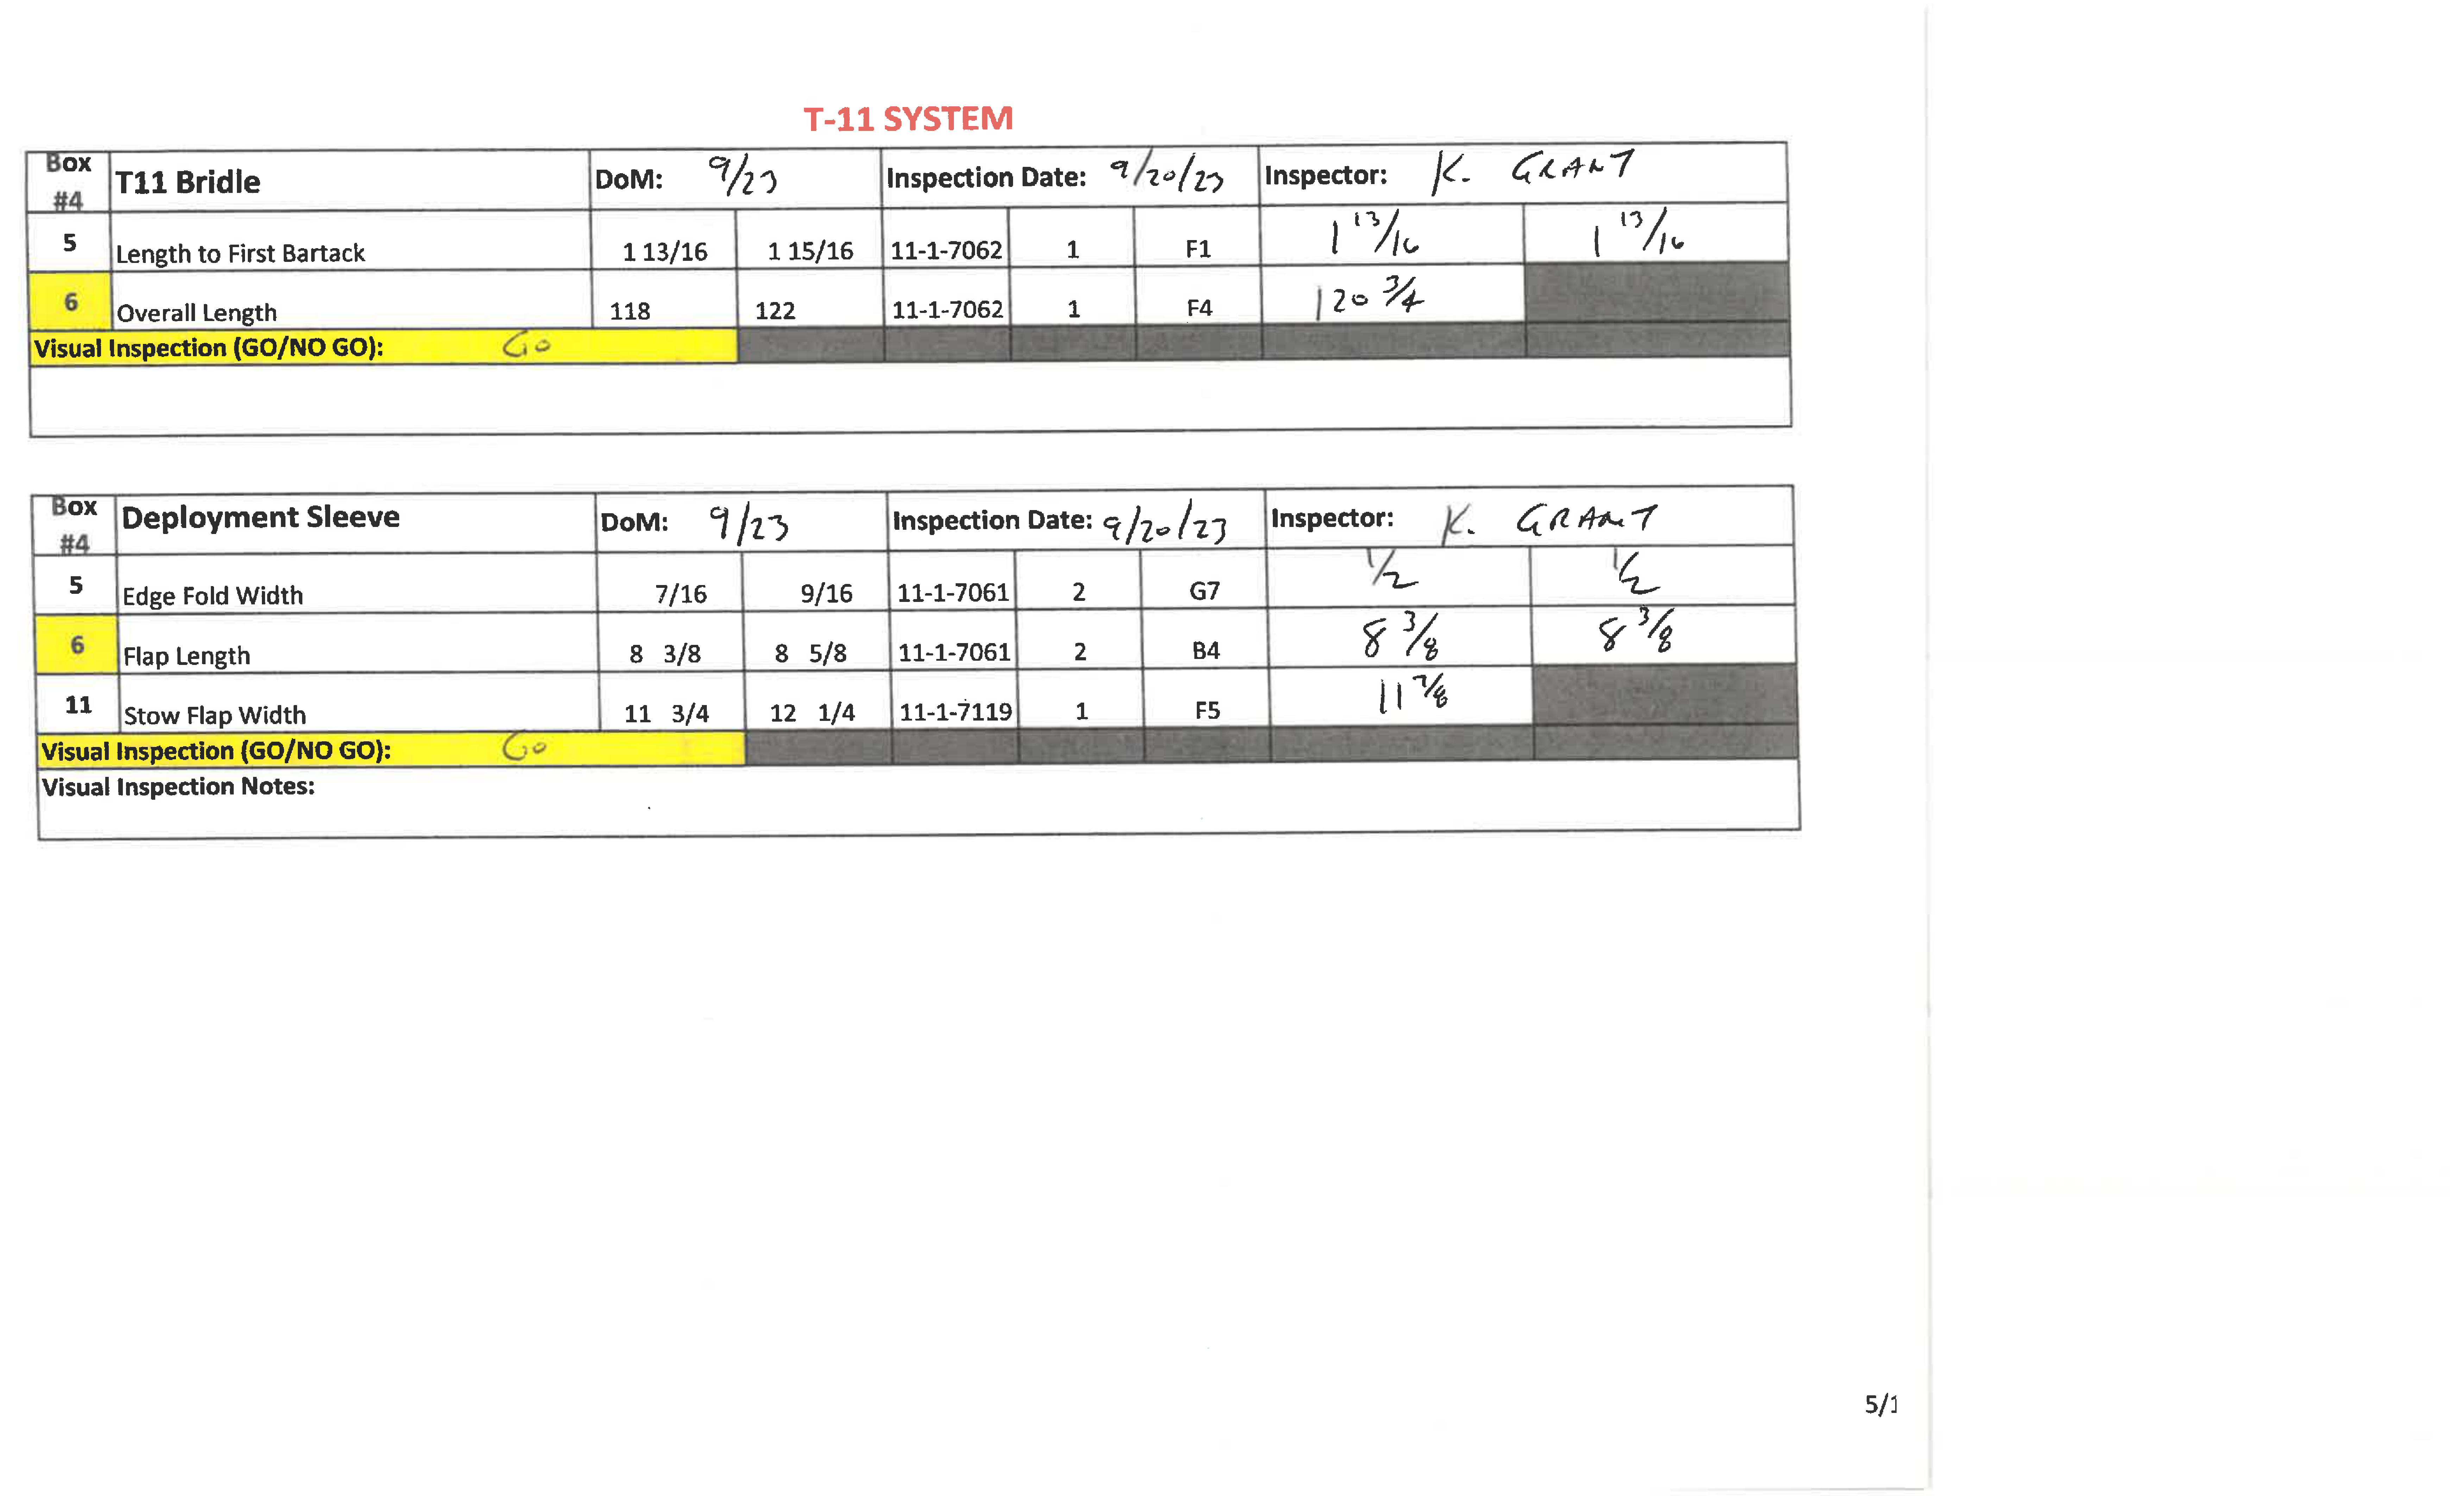 T-11 SYSTEM
Box #4 T11 Bridle DoM: 9/23 Inspection Date: 9/20/23 Inspector: K. GRANT
5 Length to First Bartack 1 13/16 1 15/16 11-1-7062 1 F1 1 13/16 1 13/16
6 Overall Length 118 122 11-1-7062 1 F4 120 3/4
Visual Inspection (GO/NO GO): GO
Box #4 Deployment Sleeve DoM: 9/23 Inspection Date: 9/20/23 Inspector: K. GRANT
5 Edge Fold Width 7/16 9/16 11-1-7061 2 G7 1/2 1/2
6 Flap Length 8 3/8 8 5/8 11-1-7061 2 B4 8 3/8 8 3/8
11 Stow Flap Width 11 3/4 12 1/4 11-1-7119 1 F5 11 7/8
Visual Inspection (GO/NO GO): GO
Visual Inspection Notes:
5/1